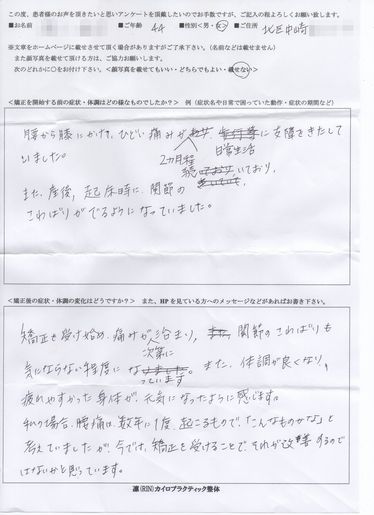 この度、患者様のお声を頂きたいと思いアンケートを頂戴したいのでお手数ですが、ご記入の程よろしくお願い致します。
■お名前 ■ご年齢 44 ■性別＜男・女＞ ■ご住所 北区中崎
※文章をホームページに載せさせて頂く場合がありますがご了承下さい。(名前などは載せません)
また顔写真を載せて頂ける方は、ご協力お願い致します。
次のどれかに○をお付けください。＜顔写真を載せてもいい・どちらでもよい・載せない＞
＜矯正を開始する前の症状・体調はどの様なものでしたか？＞ 例（症状名や日常で困っていた動作・症状の期間など）
腰から膝にかけて、ひどい痛みが
2カ月程 続いており、
日常生活に支障をきたして
いました。
また、産後、起床時に、関節の
こわばりがでるようになっていました。
＜矯正後の症状・体調の変化はどうですか？＞ また、HPを見ている方へのメッセージなどがあればお書き下さい。
矯正を受け始め、痛みが治まり、関節のこわばりも
次第に
気にならない程度になっています。また、体調が良くなり、
疲れやすかった身体が、元気になったように感じます。
私の場合、腰痛は、数年に1度、起こるもので、「こんなものかな」と
考えていましたが、今では、矯正を受けることで、それが改善するので
はないかと思っています。
凛(RIN)カイロプラクティック整体